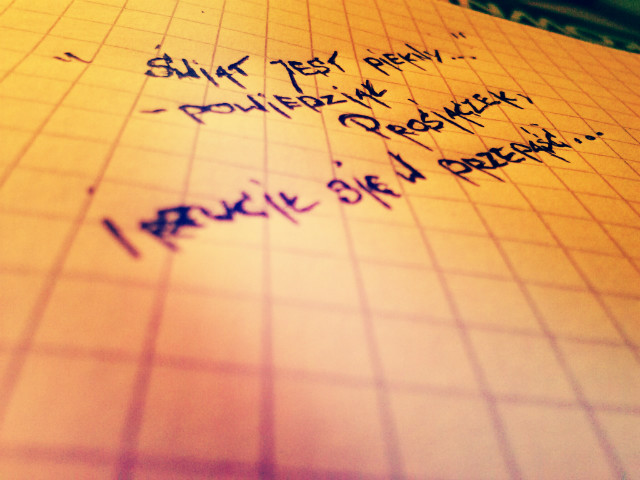 "ŚWIAT JEST PIĘKNY..."
- POWIEDZIAŁ
PROSIACZEK,
I RZUCIŁ SIĘ W PRZEPAŚĆ...